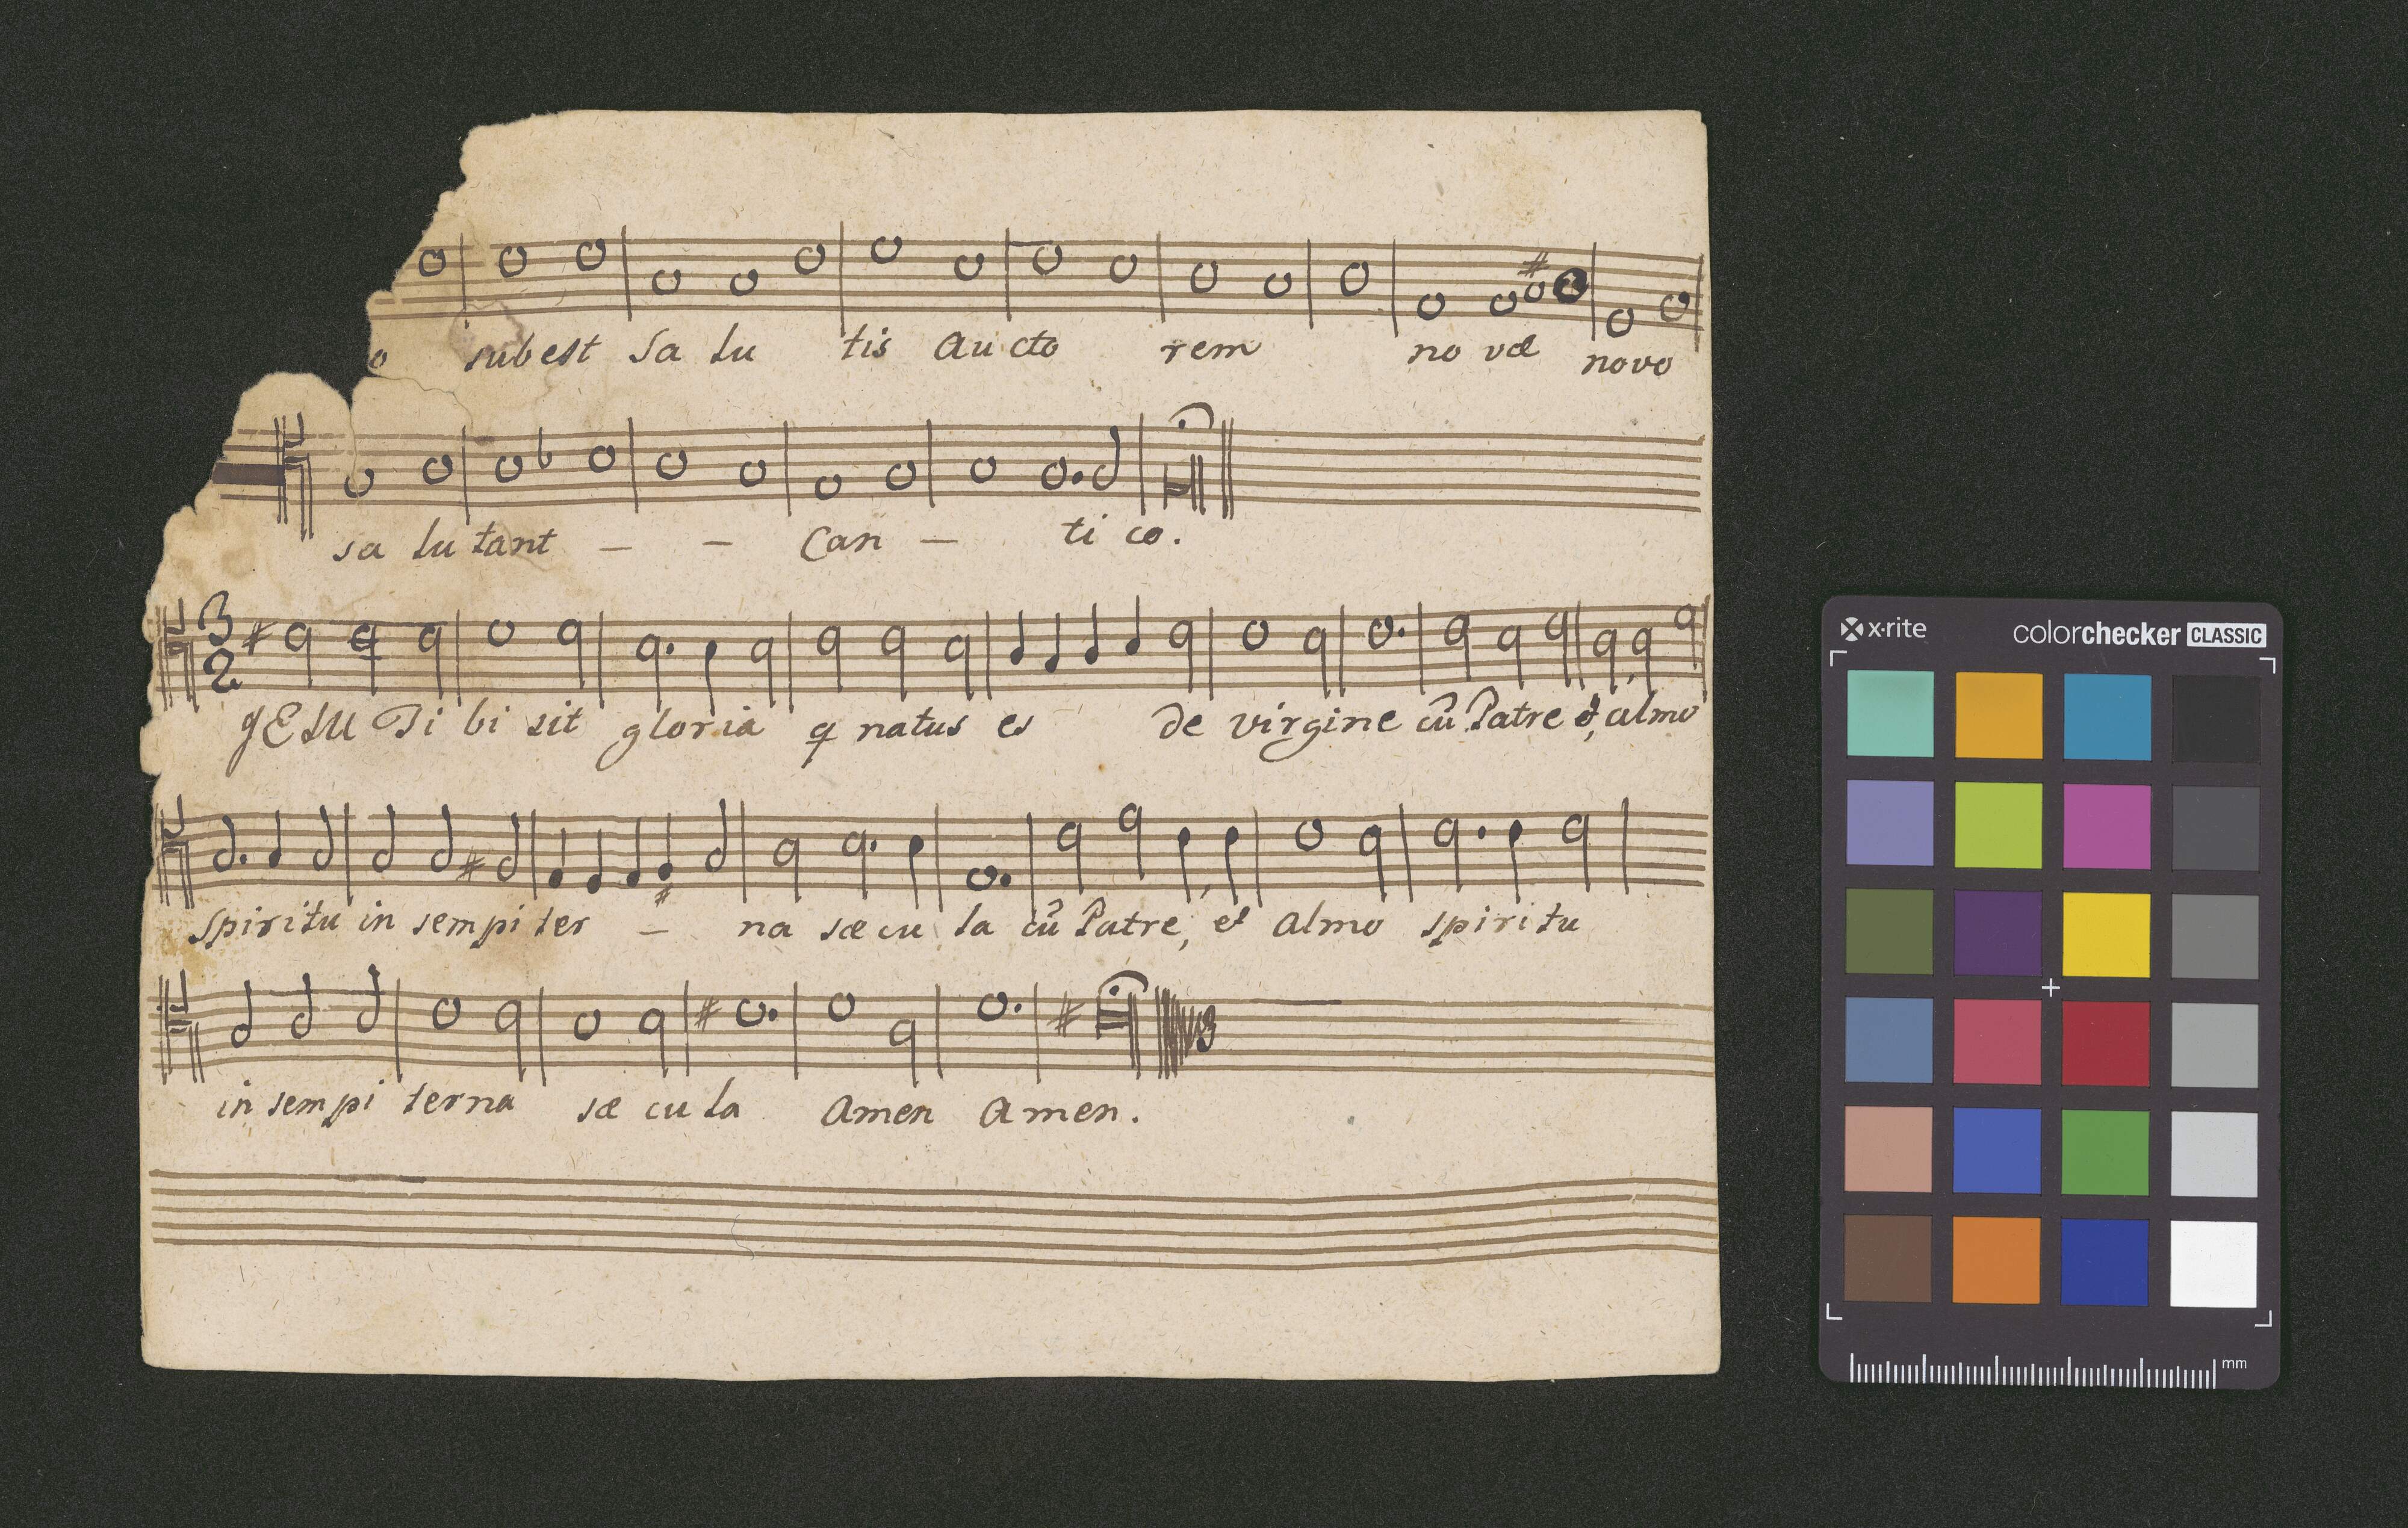 o subest sa lu tis Au cto rem no væ novo
sa lu tant — — Can — ti co.
3
2
JESU Ti bi sit gloria q natus es de virgine cū Patre et, almo
spiritu in sempi ter — na sæ cu la cū Patre, et Almo spiritu
in sempi terna sæ cu la Amen Amen.
x-rite
colorchecker CLASSIC
mm